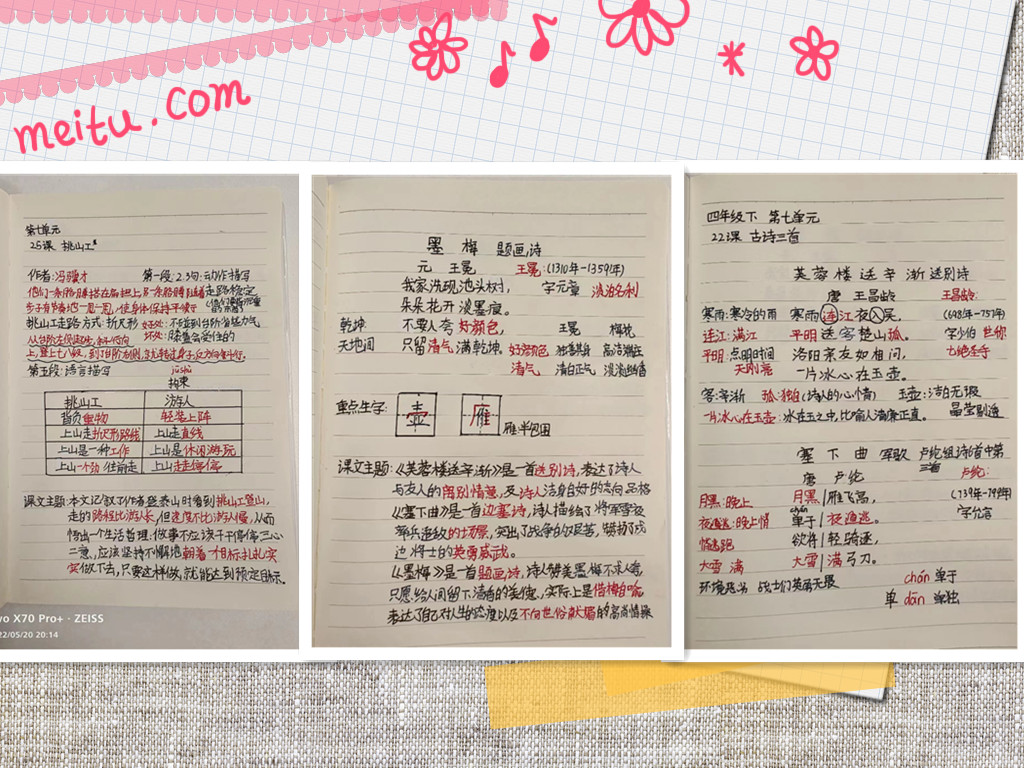 meitu.com
第七单元
25课 挑山工
作者:冯骥才 第一段:2.3句:动作描写
他们一条胳膊搭在扁担上,另一条胳膊随着走路稳定
步子有节奏地一晃一晃,使身体保持平衡
挑山工走路方式:折尺形 好处:不碰到台阶省些力气
从台阶左侧起始,斜行向
上,登上七八级,到了台阶右侧,就转过身子,反方向斜行。
第五段:语言描写 jūshù
拘束
挑山工 游行人
背负重物 轻装上阵
上山走折尺形路线 上山走直线
上山是一种工作 上山是休闲游玩
上山一个劲往前走 上山走走停停
课文主题:本文记叙了作者登泰山时看到挑山工登山,
走的路程比游人长,但速度不比游人慢,从而
悟出一个生活哲理:做事不应该干干停停三心
二意,应该坚持不懈地朝着一个目标扎扎实
实做下去,只要这样做,就能达到预定目标。
vivo X70 Pro+ · ZEISS
2022/05/20 20:14
墨 梅 题画诗
元 王冕 王冕:(1310年-1359年)
我家洗砚池头树, 字元章 淡泊名利
朵朵花开淡墨痕。
乾坤: 不要人夸好颜色, 王冕 梅花
天地间 只留清气满乾坤。 好颜色 独善其身 高洁
清气 清白正气
重点生字: 壶 雁 雁半包围
课文主题:《芙蓉楼送辛渐》是一首送别诗,表达了诗人
与友人的离别情意,及诗人洁身自好的高尚品格
《塞下曲》是一首边塞诗,诗人描绘了将军雪夜
率兵追敌的场景,突出了战争的艰苦,赞扬了戍
边将士的英勇威武。
《墨梅》是一首题画诗,诗人赞美墨梅不求人夸,
只愿给人间留下清香的美德,实际上是借梅自喻,
表达了自己对人生的态度以及不向世俗献媚的高尚情操
四年级下 第七单元
22课 古诗三首
芙 蓉 楼 送 辛 渐 送别诗
唐 王昌龄 王昌龄:
寒雨:寒冷的雨 寒雨连江夜入吴, (698年-757年)
连江:满江 平明送客楚山孤。 字少伯 世称
平明:点明时间 洛阳亲友如相问, 七绝圣手
天刚亮 一片冰心在玉壶。
客:辛渐 孤:独自(诗人的心情) 玉壶:洁白无瑕
一片冰心在玉壶:冰在玉之中,比喻人清廉正直。 晶莹剔透
塞 下 曲 军歌 卢纶组诗6首中第
三首
唐 卢纶 卢纶:
月黑:晚上 月黑/雁飞高, (739年-799年)
chán
夜遁逃:晚上悄 单于/夜遁逃。 字允言
悄逃跑 欲将/轻骑逐,
大雪 满 大雪/满弓刀。
环境恶劣 战士们英勇无畏
单 chán 单于
dān 单独